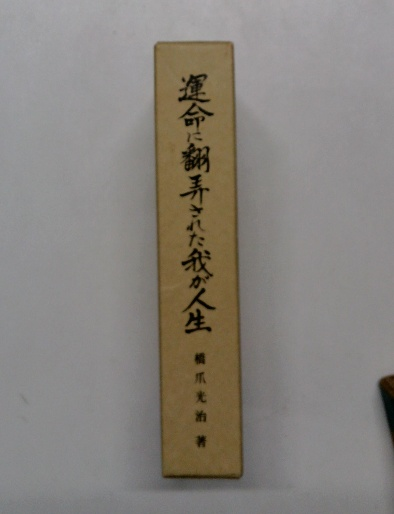 運命に翻弄された我が人生
橋爪光治著